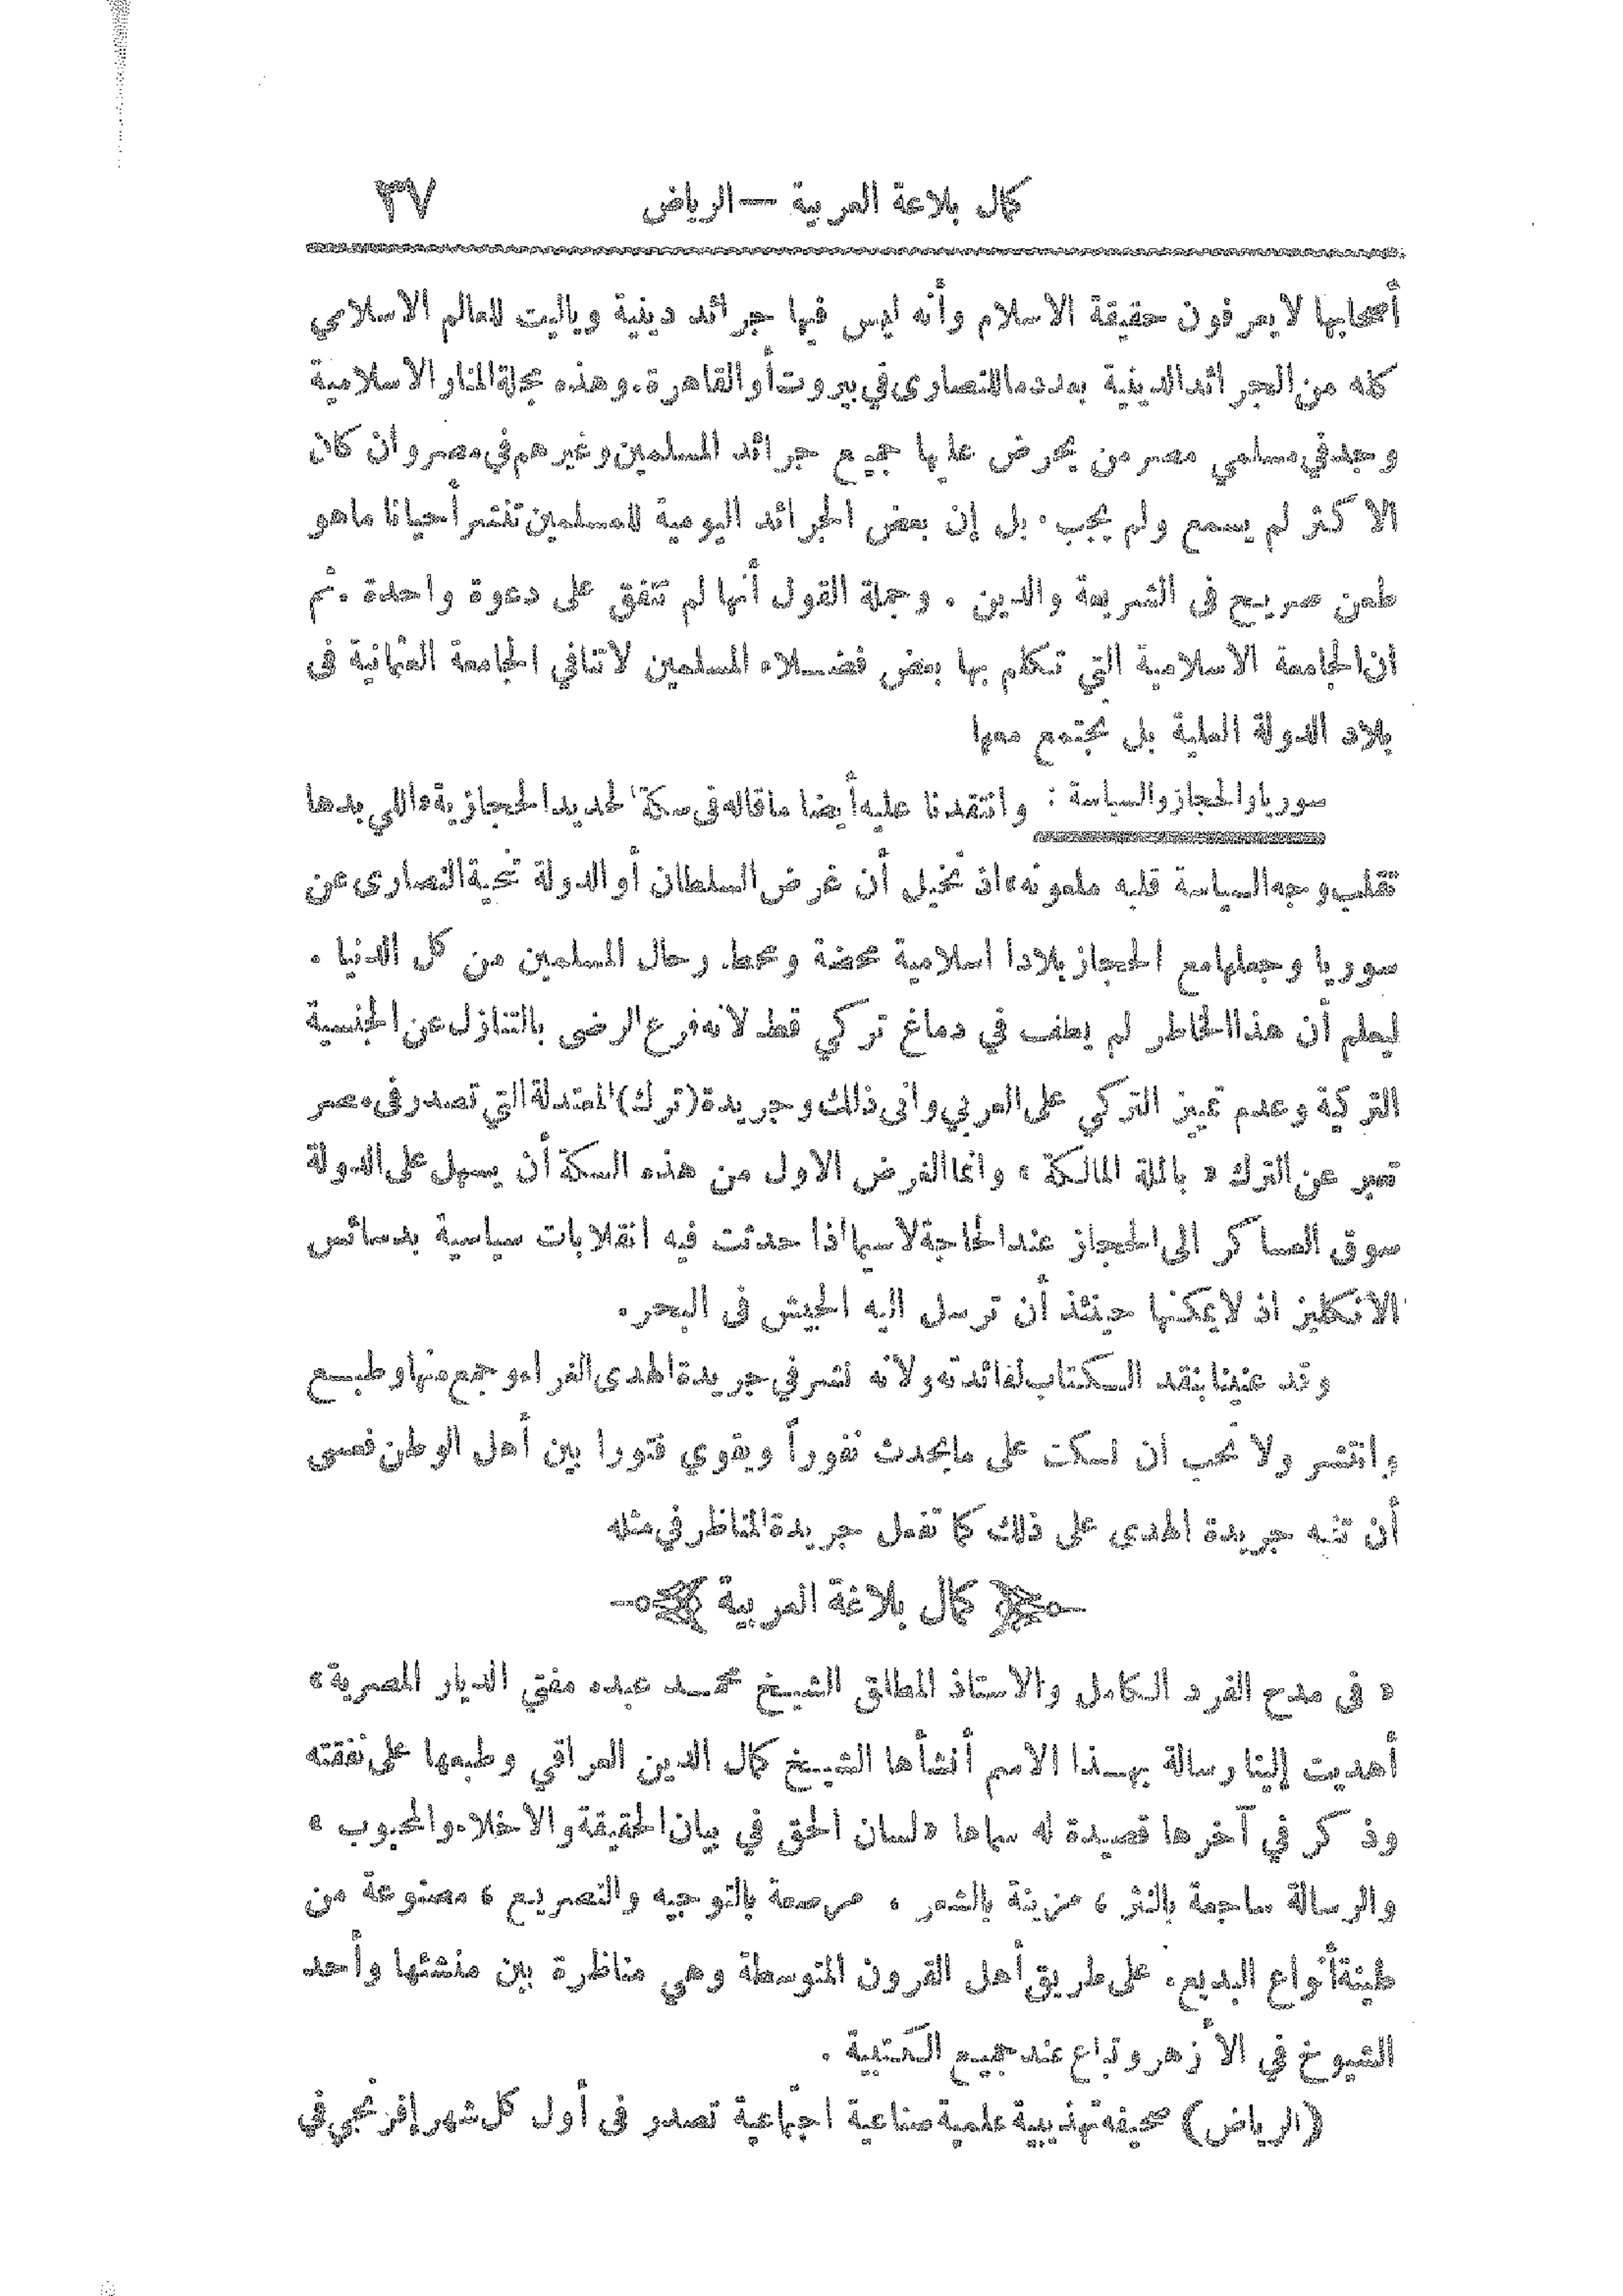 كمال بلاغة العربية — الرياض ٣٧
أصحابها لا يعرفون حقيقة الاسلام وأنه ليس فيها جرائد دينية وياليت للعالم الاسلامي
كله من الجرائد الدينية بعدد ما للنصارى في بيروت أو القاهرة. وهذه مجلة المنار الاسلامية
وجد في مسلمي مصر من يحرض عليها جميع جرائد المسلمين وغيرهم في مصر وان كان
الاكثر لم يسمع ولم يجب. بل إن بعض الجرائد اليومية للمسلمين تنشر أحيانا ما هو
طعن صريح في الشريعة والدين . وجملة القول أنها لم تتفق على دعوة واحدة . ثم
ان الجامعة الاسلامية التي تكلم بها بعض فضلاء المسلمين لا تنافي الجامعة العثمانية في
بلاد الدولة العلية بل تجتمع معها
سوريا والحجاز والسياسة : وانتقدنا عليه أيضا ما قاله في سكة الحديد الحجازية «اللي بدها
تقلب وجه السياسة قلبه ملعونه» اذ تخيل أن غرض السلطان أو الدولة تحية النصارى عن
سوريا وجعلها مع الحجاز بلادا اسلامية محضة ومحط رحال المسلمين من كل الدنيا .
ليعلم أن هذا الخاطر لم يطف في دماغ تركي قط لانه فرع الرضى بالتنازل عن الجنسية
التركية وعدم تمييز التركي على العربي وانى ذلك وجريدة (ترك) المعتدلة التي تصدر في مصر
تعبر عن الترك « بالملة المالكة » وانما الغرض الاول من هذه السكة أن يسهل على الدولة
سوق العساكر الى الحجاز عند الحاجة لا سيما اذا حدثت فيه انقلابات سياسية بدسائس
الانكليز اذ لا يمكنها حينئذ أن ترسل اليه الجيش في البحر .
وقد عنينا بنقد الكتاب لفائدته ولانه نشر في جريدة الهدى الغراء وجمع منها وطبع
وانتشر ولا نحب ان نسكت على ما يحدث نفوراً ويقوي فتورا بين أهل الوطن فعسى
أن تنبه جريدة الهدى على ذلك كما تفعل جريدة المناظر في مثله
كمال بلاغة العربية
« في مدح الفرد الكامل والاستاذ المطلق الشيخ محمد عبده مفتي الديار المصرية »
أهديت إلينا رسالة بهذا الاسم أنشأها الشيخ كمال الدين العراقي وطبعها على نفقته
وذكر في آخرها قصيدة له سماها «لسان الحق في بيان الحقيقة والاخلاء والمحبوب »
والرسالة ساجعة بالنثر ، مزينة بالشعر ، مرصعة بالتوجيه والتصريع ، مصنوعة من
طينة أنواع البديع. على طريق أهل القرون المتوسطة وهي مناظرة بين منشئها وأحد
الشيوخ في الأزهر وتباع عند جميع الكتبية .
(الرياض) صحيفه تهذيبية علمية صناعية اجتماعية تصدر في أول كل شهر إفرنجي في